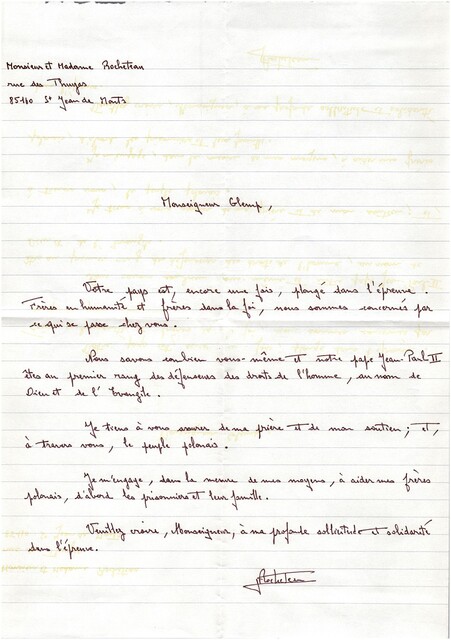 Monsieur et Madame Rocheteau
rue des Thuyas
85160 St Jean de Monts
Monseigneur Glemp,
Votre pays est, encore une fois, plongé dans l'épreuve.
Frères en humanité et frères dans la foi, nous sommes concernés par
ce qui se passe chez vous.
Nous savons combien vous-même et notre pape Jean-Paul II
êtes au premier rang des défenseurs des droits de l'homme, au nom de
Dieu et de l'Evangile.
Je tiens à vous assurer de ma prière et de mon soutien ; et,
à travers vous, le peuple polonais.
Je m'engage, dans la mesure de mes moyens, à aider mes frères
polonais, d'abord les prisonniers et leur famille.
Veuillez croire, Monseigneur, à ma profonde sollicitude et solidarité
dans l'épreuve.
Rocheteau